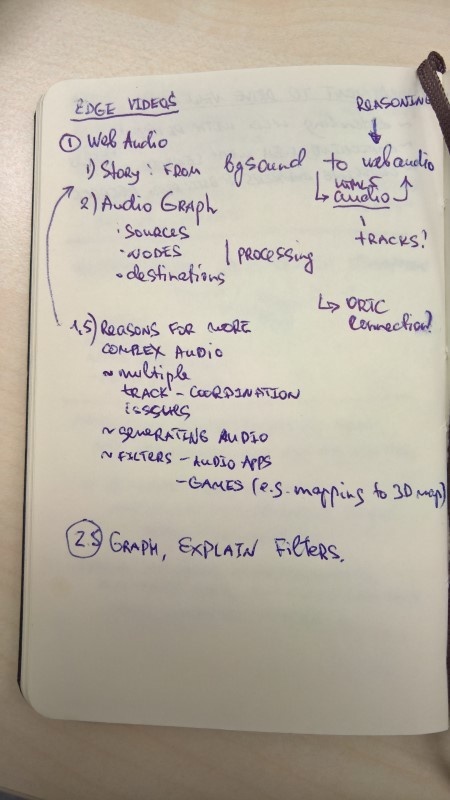 EDGE VIDEOS
REASONING
① Web Audio
1) Story: FROM bgsound to webaudio
HTML5
audio
TRACKS?
2) Audio GRAPH
SOURCES
NODES
destinations
PROCESSING
CONNECTION?
1,5) REASONS FOR MORE
COMPLEX AUDIO
~ multiple
TRACK - COORDINATION
ISSUES
~ GENERATING AUDIO
~ FILTERS - AUDIO APPS
- GAMES (e.g. mapping to 3D map)
2.5 GRAPH, EXPLAIN Filters.